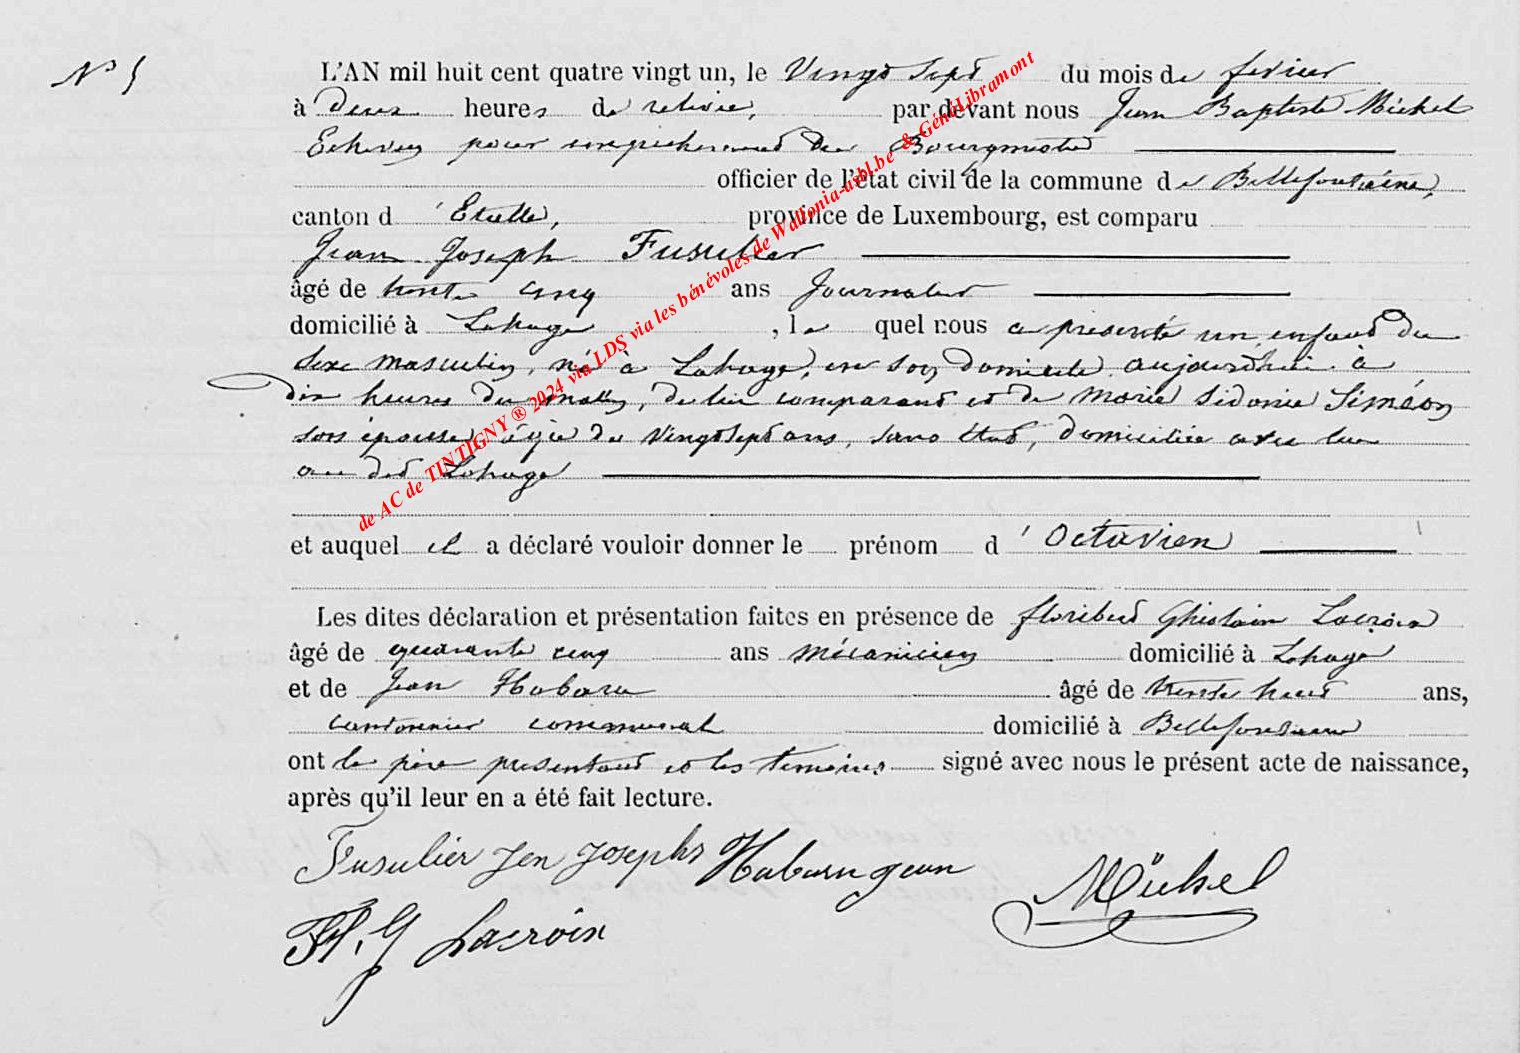 N° 5
L'AN mil huit cent quatre vingt un, le Vingt Sept du mois de fevrier
à deux heures de relevée, par devant nous Jean Baptiste Michel
Echevin pour empêchement du Bourgmestre
officier de l'état civil de la commune de Bellefontaine,
canton d'Etalle, province de Luxembourg, est comparu
Jean Joseph Fusulier
âgé de trente cinq ans Journalier
domicilié à Lahage, le quel nous a présenté un enfant du
sexe masculin, né à Lahage, en son domicile, aujourd'hui à
dix heures du matin, de lui comparant et de Marie Sidonie Siméon
son épouse, âgée de Vingtsept ans, sans état, domiciliée avec lui
au dit Lahage
et auquel il a déclaré vouloir donner le prénom d'Octavien
Les dites déclaration et présentation faites en présence de floribert Ghislain Lacroix
âgé de quarante cinq ans mécanicien domicilié à Lahage
et de Jean Habaru âgé de trente huit ans,
cantonnier communal domicilié à Bellefontaine
ont le père présentant et les témoins signé avec nous le présent acte de naissance,
après qu'il leur en a été fait lecture.
Fusulier Jen Josephs Habaru jean Michel
Fl. G Lacroix
de AC de TINTIGNY ® 2024 via LDS via les bénévoles de Wallonia-asbl.be & GénéLibramont